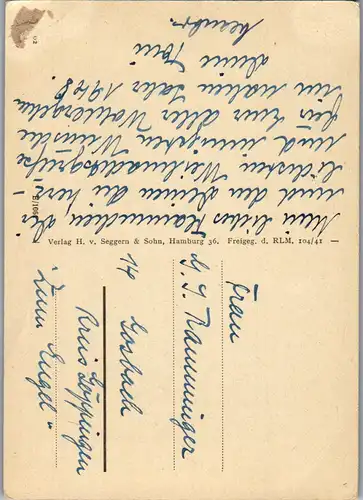 Mein liebes Hannichen dir
und den Deinen die herz-
lichsten Weihnachtsgrüße
und innigsten Wünsche
für euer aller Wohlergehn
im neuen Jahr 1948.
deine Toni
Verlag H. v. Seggern & Sohn, Hamburg 36. Freigeg. d. RLM. 104/41
Frau
Ramminger
14 Gosbach
Kreis Göppingen
"Zum Engel"